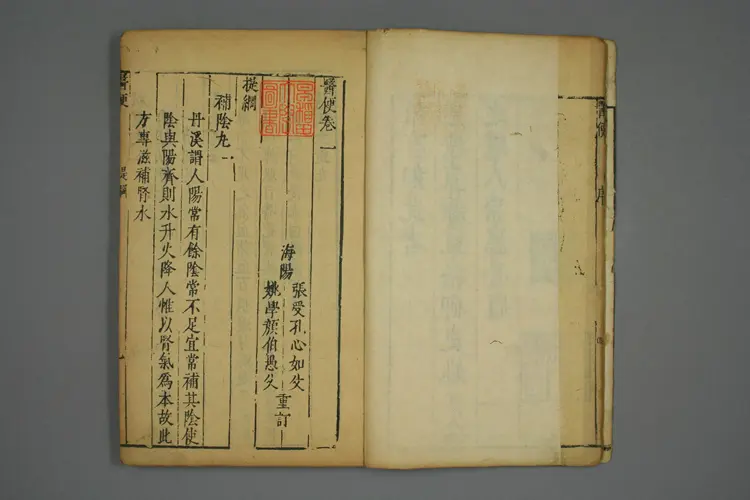 醫便 序
醫便卷一
海陽
張受孔心如父
姚學顏伯愚父
重訂
提綱
補陰丸一
丹溪謂人陽常有餘陰常不足宜常補其陰使
陰與陽齊則水升火降人惟以腎氣爲本故此
方專滋補腎水
醫便
提綱